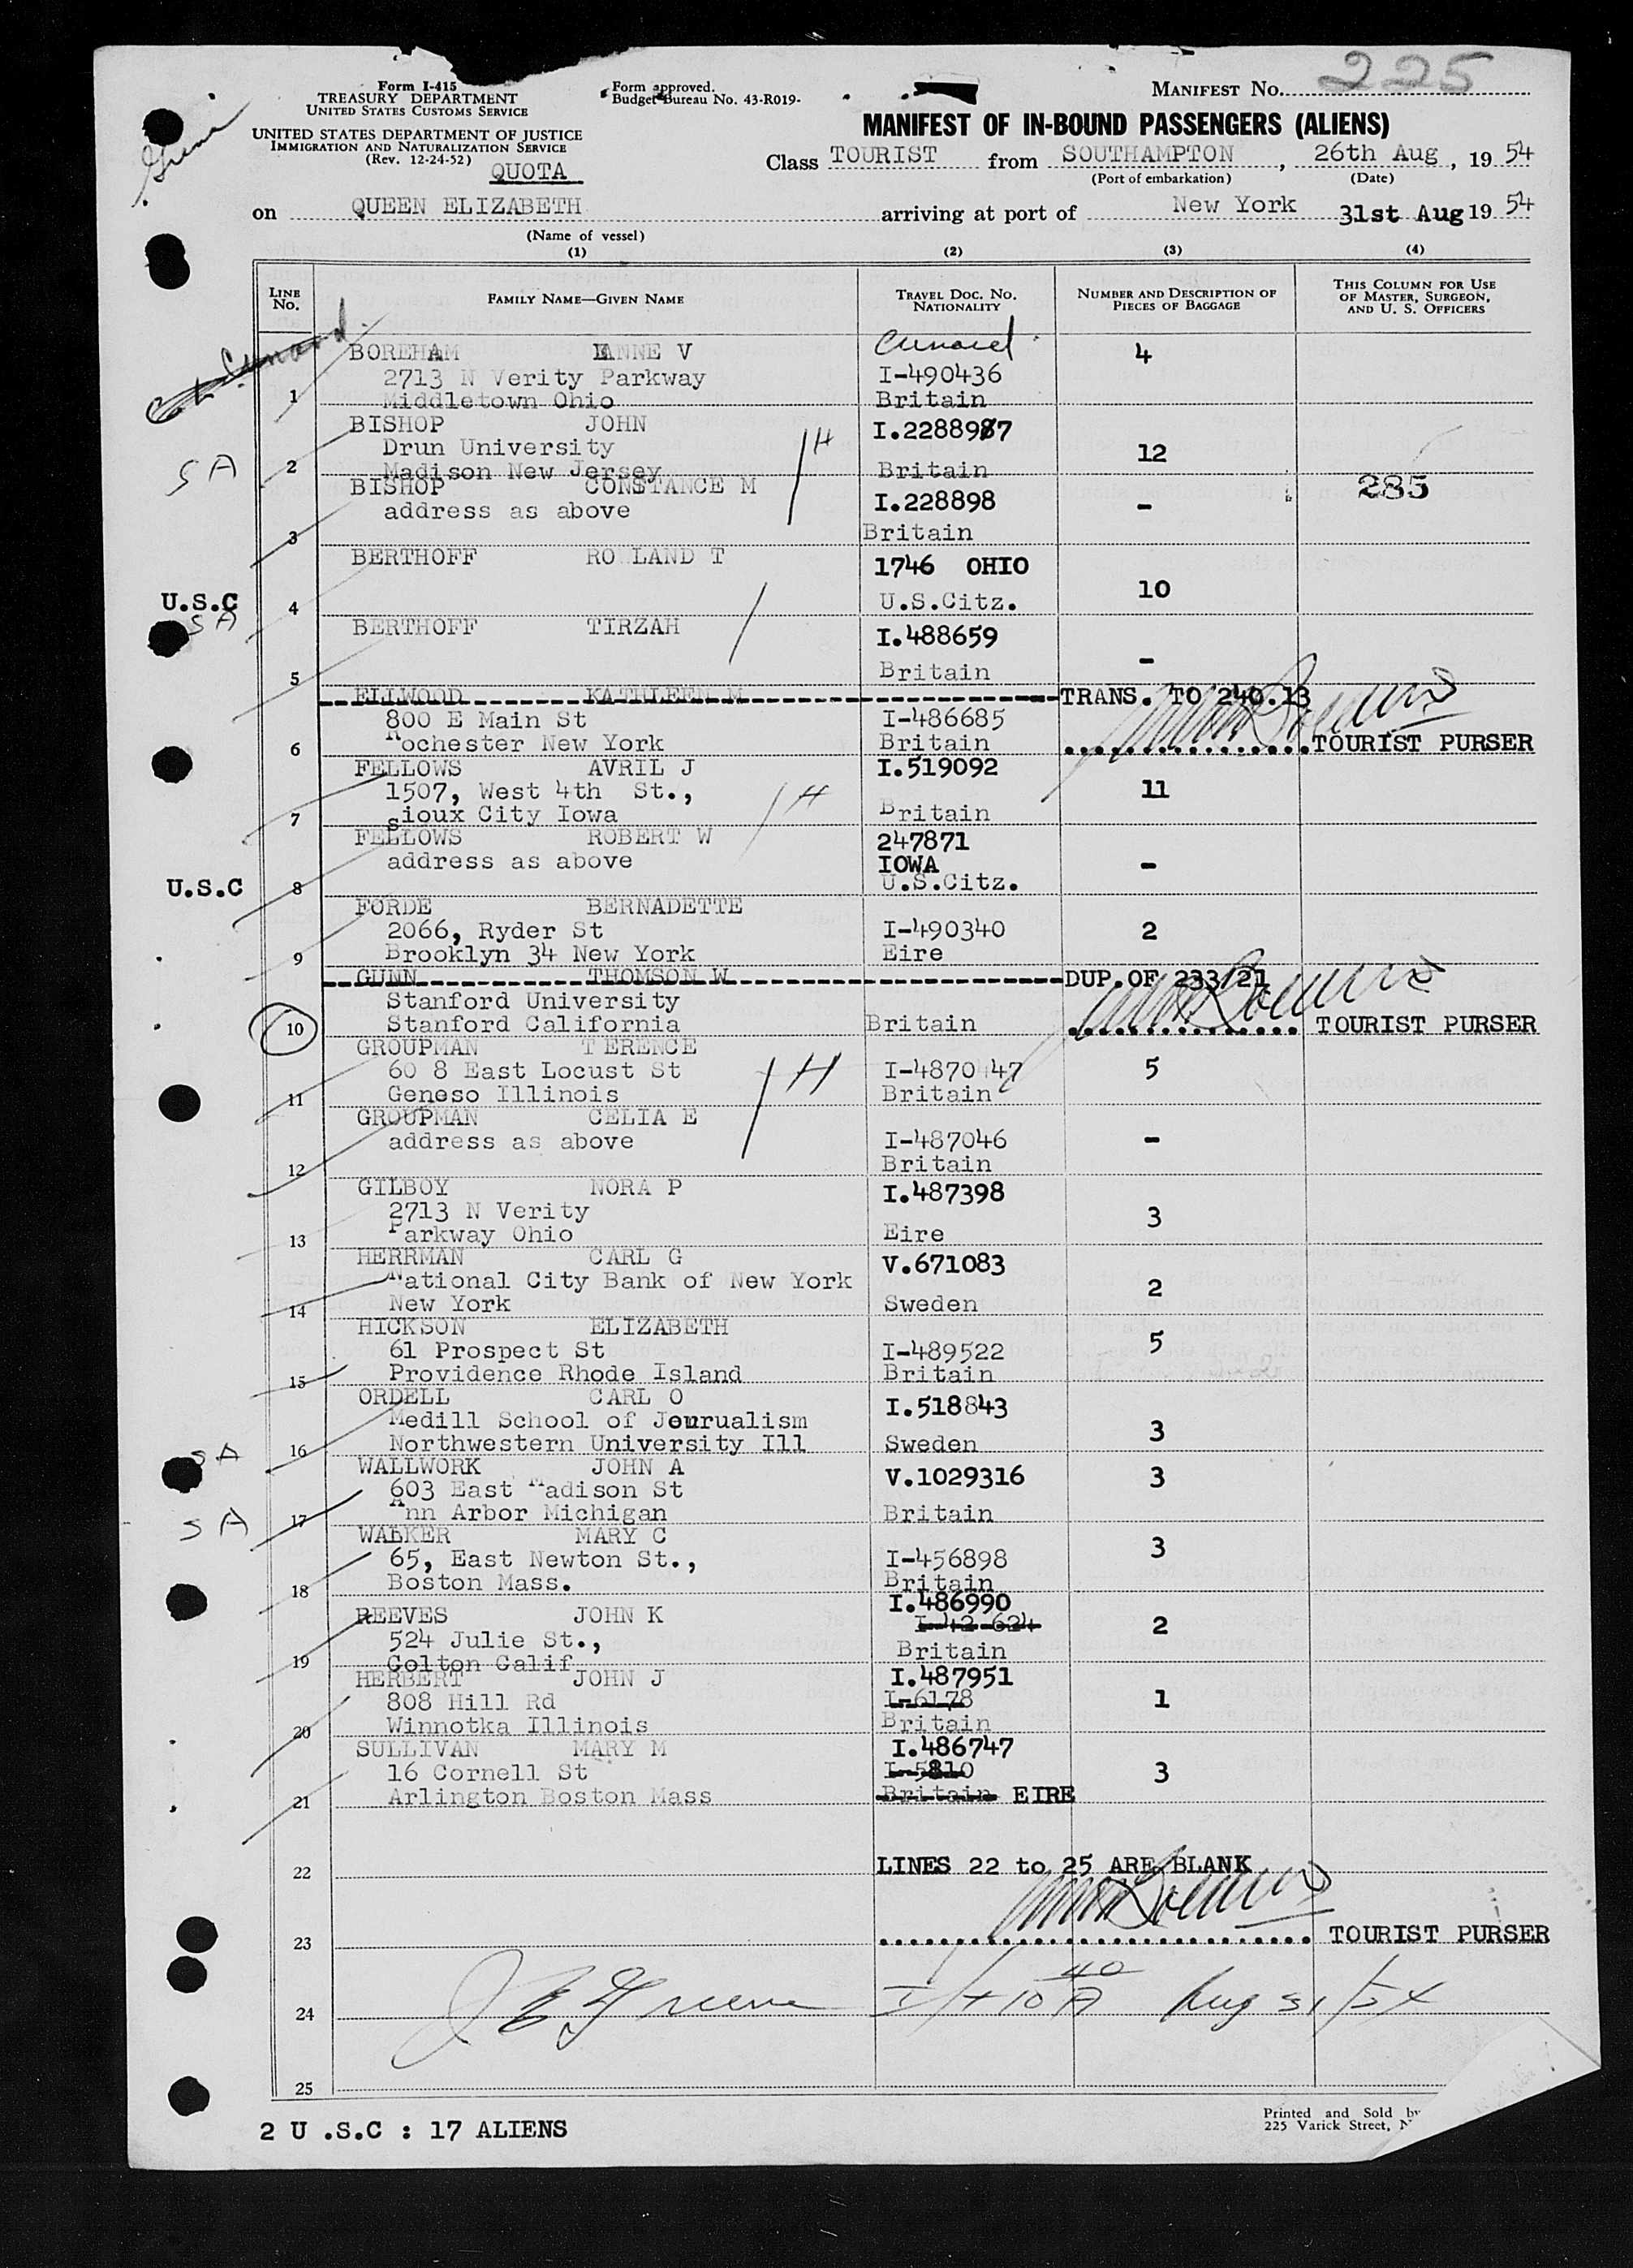 225
Form I-415
TREASURY DEPARTMENT
UNITED STATES CUSTOMS SERVICE
UNITED STATES DEPARTMENT OF JUSTICE
IMMIGRATION AND NATURALIZATION SERVICE
(Rev. 12-24-52)
QUOTA
Form approved.
Budget Bureau No. 43-R019-
MANIFEST NO.
MANIFEST OF IN-BOUND PASSENGERS (ALIENS)
Class TOURIST from SOUTHAMPTON, 26th Aug, 19 54
(Port of embarkation) (Date)
on QUEEN ELIZABETH arriving at port of New York 31st Aug 19 54
(Name of vessel)
(1) (2) (3) (4)
LINE NO. FAMILY NAME—GIVEN NAME TRAVEL DOC. NO. NATIONALITY NUMBER AND DESCRIPTION OF PIECES OF BAGGAGE THIS COLUMN FOR USE OF MASTER, SURGEON, AND U. S. OFFICERS
Cunard Cunard
BOREHAM ANNE V 4
2713 N Verity Parkway I-490436
1 Middletown Ohio Britain
BISHOP JOHN I.2288987
Drun University H 12
SA 2 Madison New Jersey Britain
BISHOP CONSTANCE M 285
address as above I.228898 -
3 Britain
BERTHOFF RO LAND T 1746 OHIO
U.S.C 4 U.S.Citz. 10
SA
BERTHOFF TIRZAH I.488659
5 Britain -
ELLWOOD KATHLEEN M TRANS. TO 240.13
800 E Main St I-486685
6 Rochester New York Britain TOURIST PURSER
FELLOWS AVRIL J I.519092
1507, West 4th St., H 11
7 Sioux City Iowa Britain
FELLOWS ROBERT W 247871
address as above IOWA -
U.S.C 8 U.S.Citz.
FORDE BERNADETTE
2066, Ryder St I-490340 2
9 Brooklyn 34 New York Eire
GUNN THOMSON W DUP.OF 233/21
Stanford University
10 Stanford California Britain TOURIST PURSER
GROUPMAN T ERENCE
60 8 East Locust St H I-4870 47 5
11 Geneso Illinois Britain
GROUPMAN CELIA E
address as above I-487046 -
12 Britain
GILBOY NORA P I.487398
2713 N Verity 3
13 Parkway Ohio Eire
HERRMAN CARL G V.671083
National City Bank of New York 2
14 New York Sweden
HICKSON ELIZABETH
61 Prospect St I-489522 5
15 Providence Rhode Island Britain
ORDELL CARL O I.518843
Medill School of Jeurualism 3
SA 16 Northwestern University Ill Sweden
WALLWORK JOHN A V.1029316 3
603 East Madison St
SA 17 Ann Arbor Michigan Britain
WALKER MARY C 3
65, East Newton St., I-456898
18 Boston Mass. Britain
I.486990
REEVES JOHN K I-42 624 2
524 Julie St., Britain
19 Colton Calif
HERBERT JOHN J I.487951
808 Hill Rd I-6178 1
20 Winnotka Illinois Britain
SULLIVAN MARY M I.486747
16 Cornell St I-5810 3
21 Arlington Boston Mass Britain EIRE
22 LINES 22 to 25 ARE BLANK
23 TOURIST PURSER
24 J E Greene Aug 31/54
25
2 U .S.C : 17 ALIENS
Printed and Sold by
225 Varick Street, N